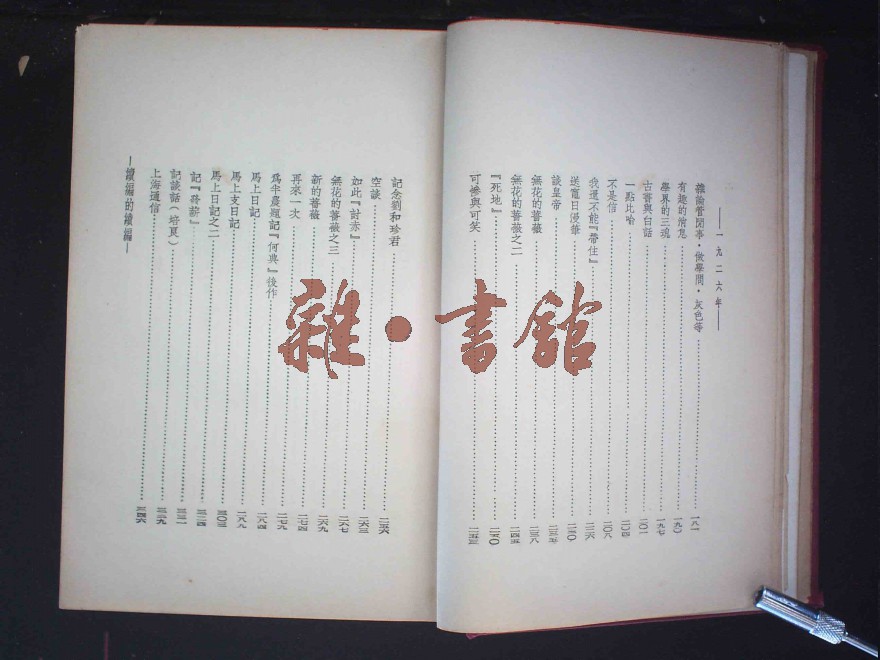 ——一九二六年——
雜論管閒事・做學問・灰色等 一八一
有趣的消息 一九〇
學界的三魂 一九七
古書與白話 二〇一
一點比喻 二〇四
不是信 二〇八
我還不能『帶住』 二二六
送竈日漫筆 二三〇
談皇帝 二三五
無花的薔薇 二三八
無花的薔薇之二 二四五
『死地』 二五〇
可慘與可笑 二五三
記念劉和珍君 二五六
空談 二六三
如此『討赤』 二六七
無花的薔薇之三 二六九
新的薔薇 二七四
再來一次 二七九
爲半農題記『何典』後作 二八四
馬上日記 二八九
馬上支日記 三〇三
馬上日記之二
記『發薪』
記談話（培良）
上海通信 三四六
—續編的續編—
雜・書館